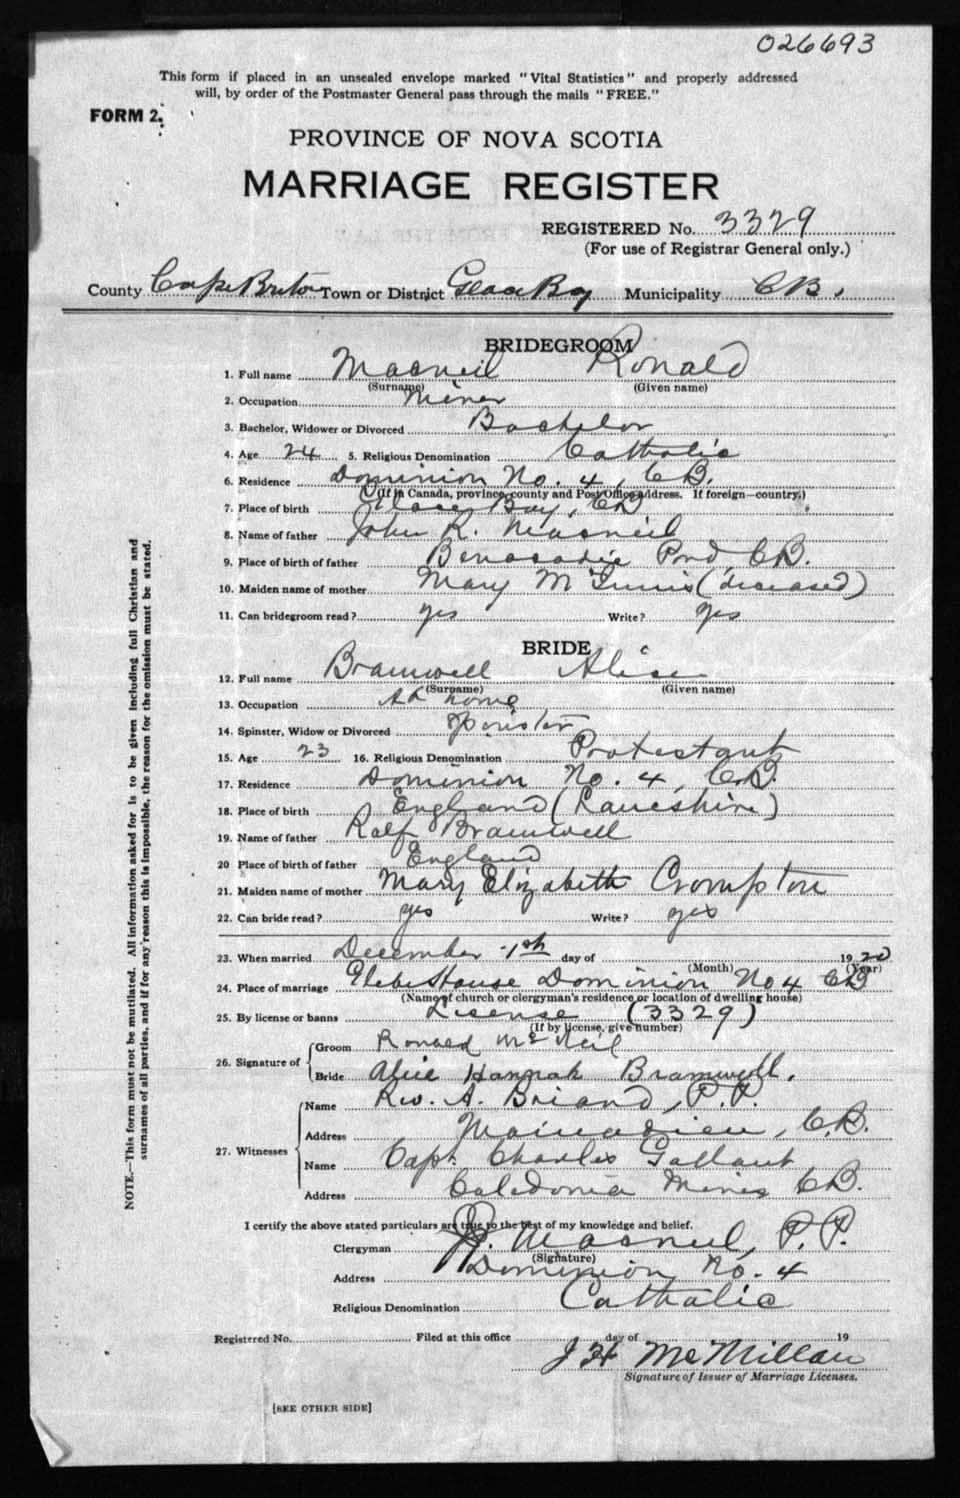 026693
This form if placed in an unsealed envelope marked "Vital Statistics" and properly addressed
will, by order of the Postmaster General pass through the mails "FREE."
FORM 2.
PROVINCE OF NOVA SCOTIA
MARRIAGE REGISTER
REGISTERED No. 3329
(For use of Registrar General only.)
County Cape Breton Town or District Glace Bay Municipality C B.
BRIDEGROOM
1. Full name Macneil Ronald
(Surname) (Given name)
2. Occupation Miner
3. Bachelor, Widower or Divorced Bachelor
4. Age 24 5. Religious Denomination Catholic
6. Residence Dominion No. 4, C B.
(If in Canada, province, county and Post Office address. If foreign—country.)
7. Place of birth Glace Bay, C B
8. Name of father John R. Macneil
9. Place of birth of father Benacadie Pond C B.
10. Maiden name of mother Mary McInnis (deceased)
11. Can bridegroom read? yes Write? yes
BRIDE
12. Full name Bramwell Alice
(Surname) (Given name)
13. Occupation At home
14. Spinster, Widow or Divorced Spinster
15. Age 23 16. Religious Denomination Protestant
17. Residence Dominion No. 4, C.B.
18. Place of birth England (Lancshire)
19. Name of father Ralf Bramwell
20 Place of birth of father England
21. Maiden name of mother Mary Elizabeth Crompton
22. Can bride read? yes Write? yes
23. When married December 1st day of 1920
(Month) (Year)
24. Place of marriage Glebe House Dominion No 4 C B
(Name of church or clergyman's residence or location of dwelling house)
25. By license or banns License (3329)
(If by license, give number)
26. Signature of Groom Ronald McNeil
Bride Alice Hannah Bramwell.
27. Witnesses Name Rev. A. Briand, P.P.
Address Mainadieu, C.B.
Name Capt. Charles Gallant
Address Caledonia Mines C B.
I certify the above stated particulars are true to the best of my knowledge and belief.
Clergyman Macneil, P.P.
(Signature)
Address Dominion No. 4
Religious Denomination Catholic
Registered No. Filed at this office day of 19
McMillan
Signature of Issuer of Marriage Licenses.
[SEE OTHER SIDE]
NOTE.—This form must not be mutilated. All information asked for is to be given including full Christian and
surnames of all parties, and if for any reason this is impossible, the reason for the omission must be stated.